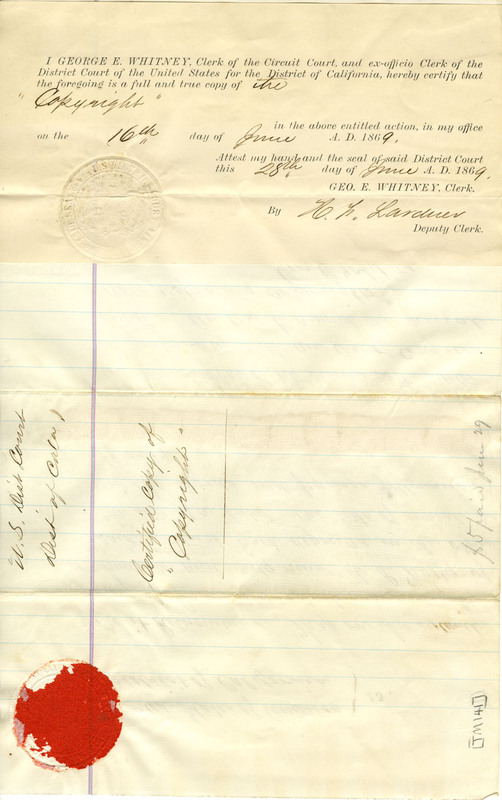 I GEORGE E. WHITNEY, Clerk of the Circuit Court, and ex-officio Clerk of the
District Court of the United States for the District of California, hereby certify that
the foregoing is a full and true copy of the
"Copyright"
in the above entitled action, in my office
on the 16th day of June A. D. 1869,
Attest my hand and the seal of said District Court
this 28th day of June A. D. 1869,
GEO. E. WHITNEY, Clerk.
By H. Lardner
Deputy Clerk.
U. S. Dist Court
Dist of Cala
Certified Copy of
"Copyright"
paid 29
[JM141]